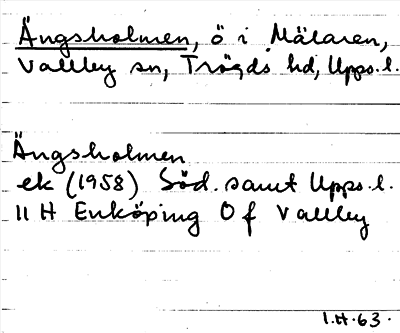 Ängsholmen, ö i Mälaren,
Vallby sn, Trögds hd, Upps. l.
Ängsholmen
ek (1958) Söd. samt Upps. l.
11 H Enköping 0 f Vallby
I.H. 63.